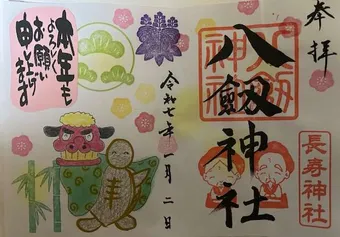 奉拝
八劔神社
八剱神社
長寿神社
令和七年一月二日
本年も
よろしく
お願い
申し上げ
ます